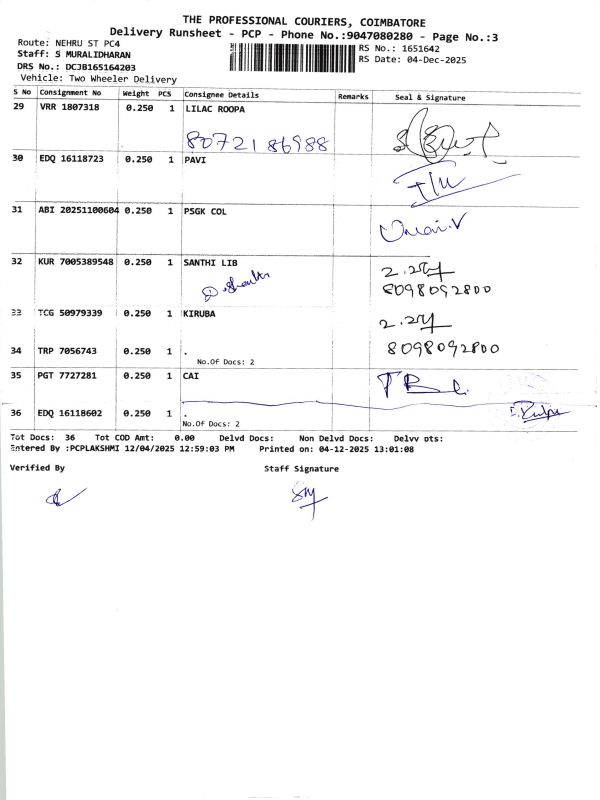 THE PROFESSIONAL COURIERS, COIMBATORE
Delivery Runsheet - PCP - Phone No.:9047080280 - Page No.:3
Route: NEHRU ST PC4
RS No.: 1651642
Staff: S MURALIDHARAN
RS Date: 04-Dec-2025
DRS No.: DCJB165164203
Vehicle: Two Wheeler Delivery
S No Consignment No Weight PCS Consignee Details Remarks Seal & Signature
29 VRR 1807318 0.250 1 LILAC ROOPA
8072186988
30 EDQ 16118723 0.250 1 PAVI
31 ABI 20251100604 0.250 1 PSGK COL
32 KUR 7005389548 0.250 1 SANTHI LIB
8098092800
33 TCG 50979339 0.250 1 KIRUBA
34 TRP 7056743 0.250 1 . 8098092800
No.Of Docs: 2
35 PGT 7727281 0.250 1 CAI
36 EDQ 16118602 0.250 1 .
No.Of Docs: 2
Tot Docs: 36 Tot COD Amt: 0.00 Delvd Docs: Non Delvd Docs: Delvv pts:
Entered By :PCPLAKSHMI 12/04/2025 12:59:03 PM Printed on: 04-12-2025 13:01:08
Verified By Staff Signature